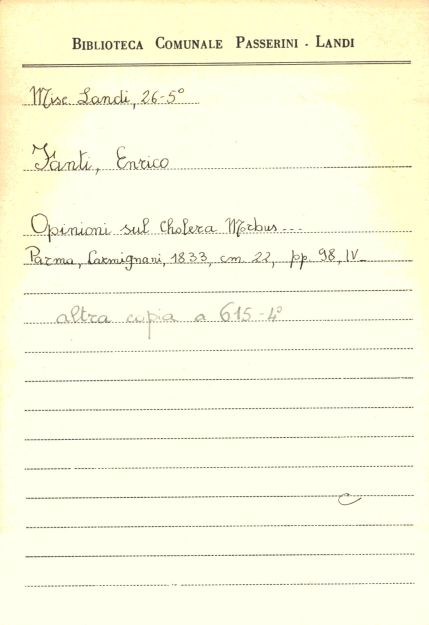 BIBLIOTECA COMUNALE PASSERINI - LANDI
Misc. Landi, 26-5°
Fanti, Enrico
Opinioni sul Cholera Morbus ---
Parma, Carmignani, 1833, cm. 22, pp. 98, IV_
altra copia a 615-4°
C